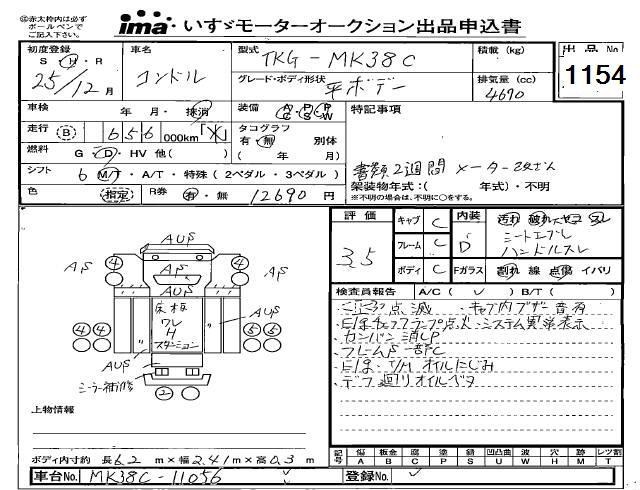 ※赤太枠内は必ず
ボールペンで
ご記入下さい。
ima・いすゞモーターオークション出品申込書
初度登録
S・H・R
25/12月
車名
コンドル
型式
TKG-MK38C
グレード・ボディ形状
平ボデー
積載(kg)
排気量(cc)
4690
出品No
1154
車検
年 月・抹消
装備
A/C P/S P/W
特記事項
走行
B
656
000km「メ」
タコグラフ
有・無 別体
( 年 月)
燃料
G・D・HV 他( )
シフト
6 MT・A/T・特殊(2ペダル・3ペダル)
色
(指定)
R券
有・無
12690円
書類2週間 メーター改ざん
架装物年式:( 年式)・不明
※不明の場合は、不明に○をする。
評価
3.5
キャブ C
フレーム C
ボディ C
内装
D
汚れ 破れ ヤコ スレ
シートエグレ
ハンドルスレ
Fガラス
割れ 線 点傷 イバリ
検査員報告
A/C( ✓ ) B/T( )
点滅 ・キャブ内ブザー音有
・E/gチェックランプ点灯・システム異常表示
・カンバン消しP
・フレームP一部C
・E/g・T/Mオイルにじみ
・デフ廻りオイルベタ
AUP
A/P
4
AP
4
A/P
AUP
AUP
床板
ワレ
サ
スタンション
AUP
4 4
5 5
AUP
シーラー補修
2
上物情報
ボディ内寸約 長6.2m×幅2.41m×高0.3m
記号
傷 板金 腐 塗 錆 凹凸曲 波 穴 跡 レツ割
A B C P S U W H M T
車台No.
MK38C-11056
登録No.